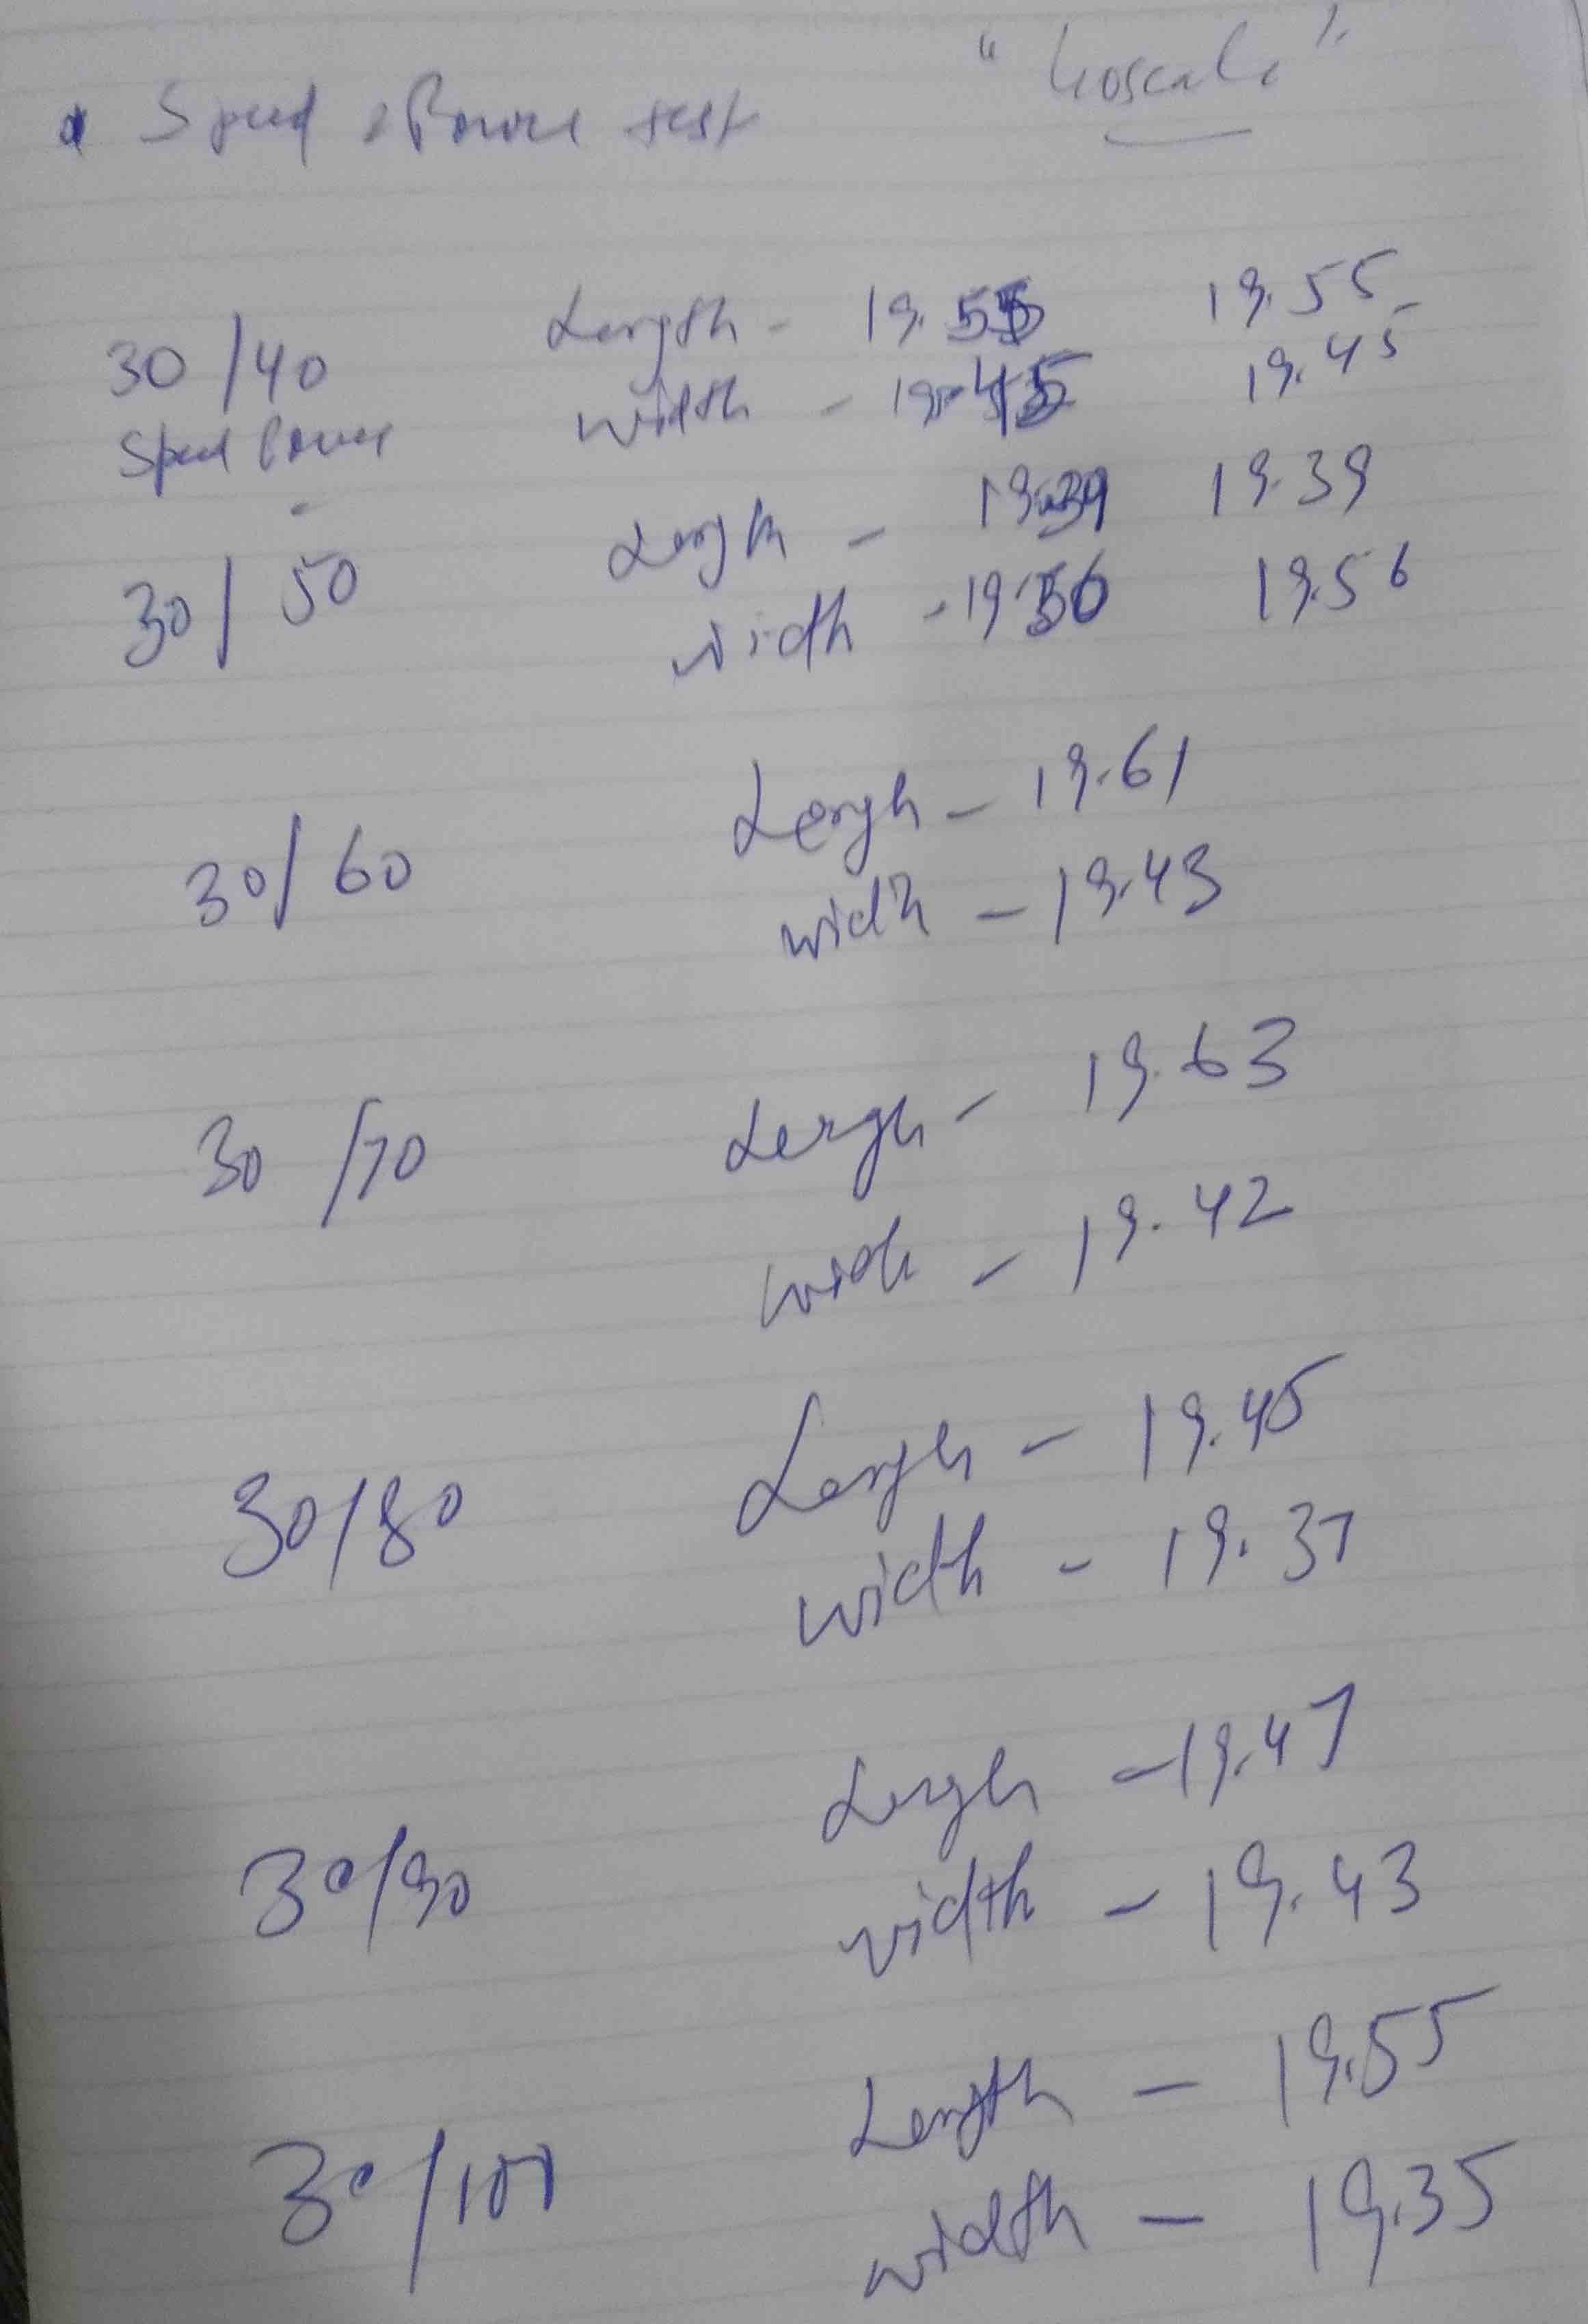 Speed & Power test
30/40 Length - 19.55 19.55
Speed Power width - 19.45 19.45
30/50 Length - 19.39 19.39
width - 19.56 19.56
30/60 Lengh - 19.61
width - 19.43
30/70 Lengh - 19.63
widh - 19.42
30/80 Lengh - 19.45
width - 19.37
30/90 Lengh - 19.47
width - 19.43
30/100 Length - 19.55
width - 19.35